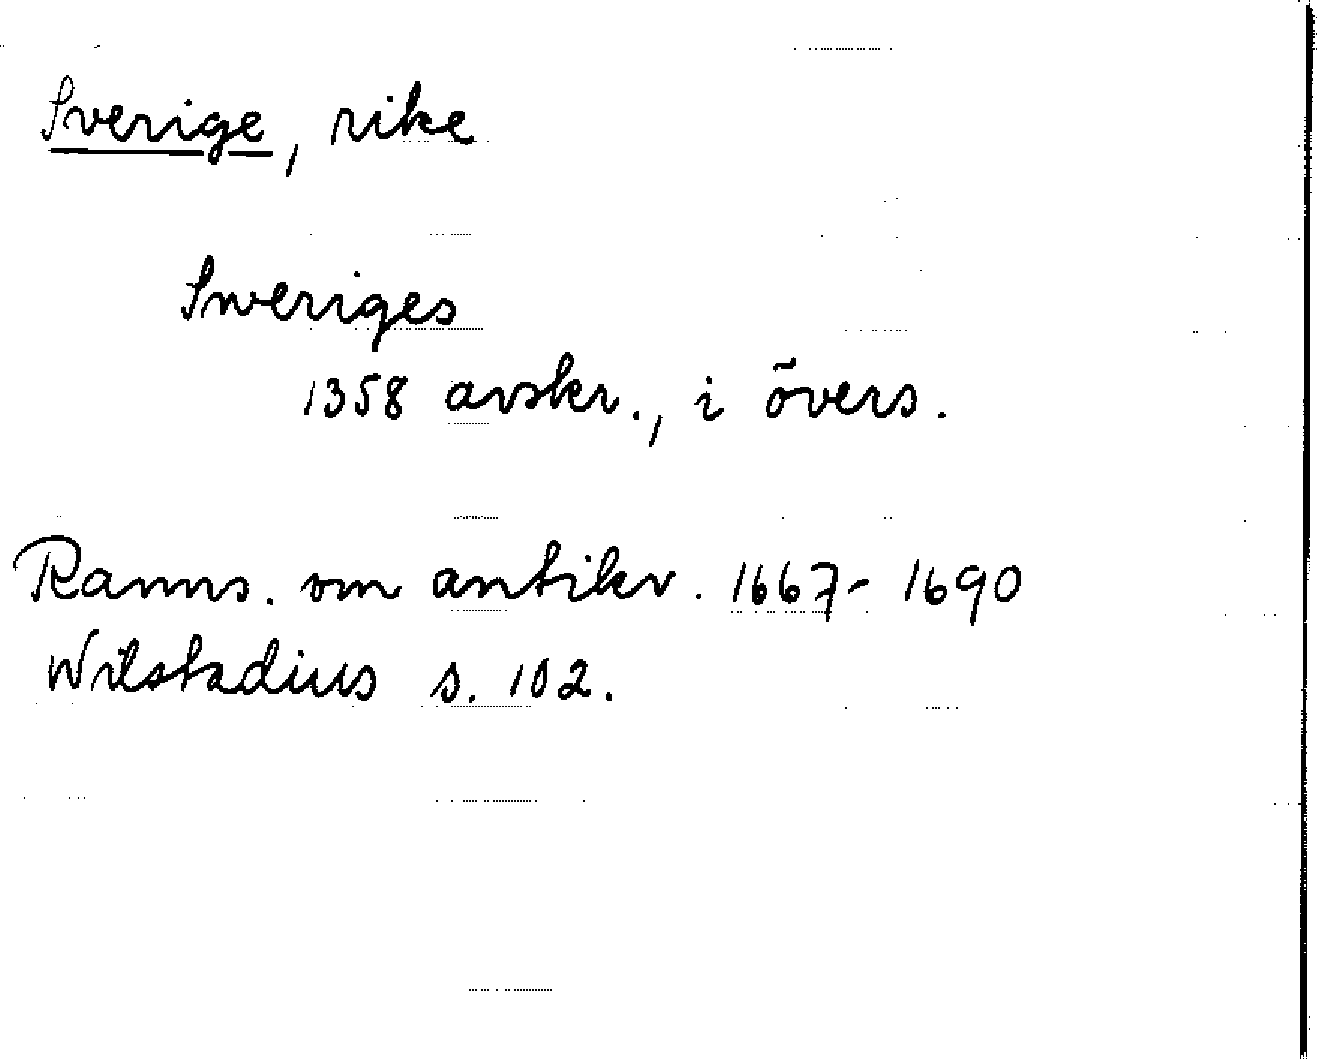 Sverige, rike
Sweriges
1358 avskr., i övers.
Ranns. om antikv. 1667- 1690
Wilstadius s. 102.